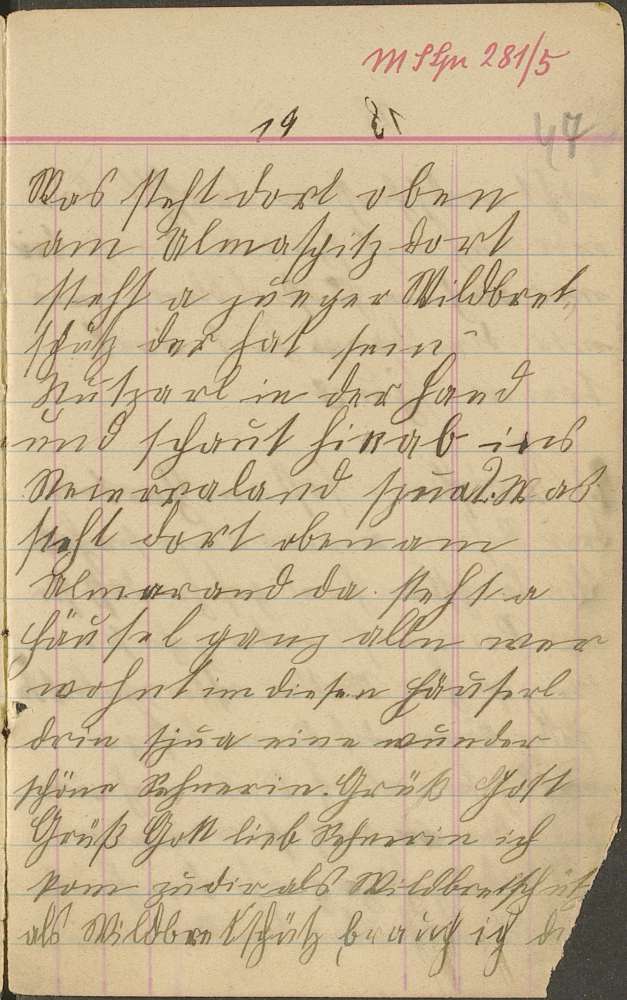 M S Gu 281/5
19 31
47
Was steht dort oben
am Almaspitz dort
steht a junger Wildbret
schütz der hat sein
Stutzarl in der Hand
und schaut hinab ins
Steierraland sjua 2. Was
steht dort oben am
Almarand da steht a
Häusel ganz alln wer
wohnt in diesen Häuserl
drin sjua eine wunder
schöne Sehnerin. Grüß Gott
Grüß Gott lieb Sehnerin ich
kom zu dir als Wildbretschütz
als Wildbretschütz brauch ich